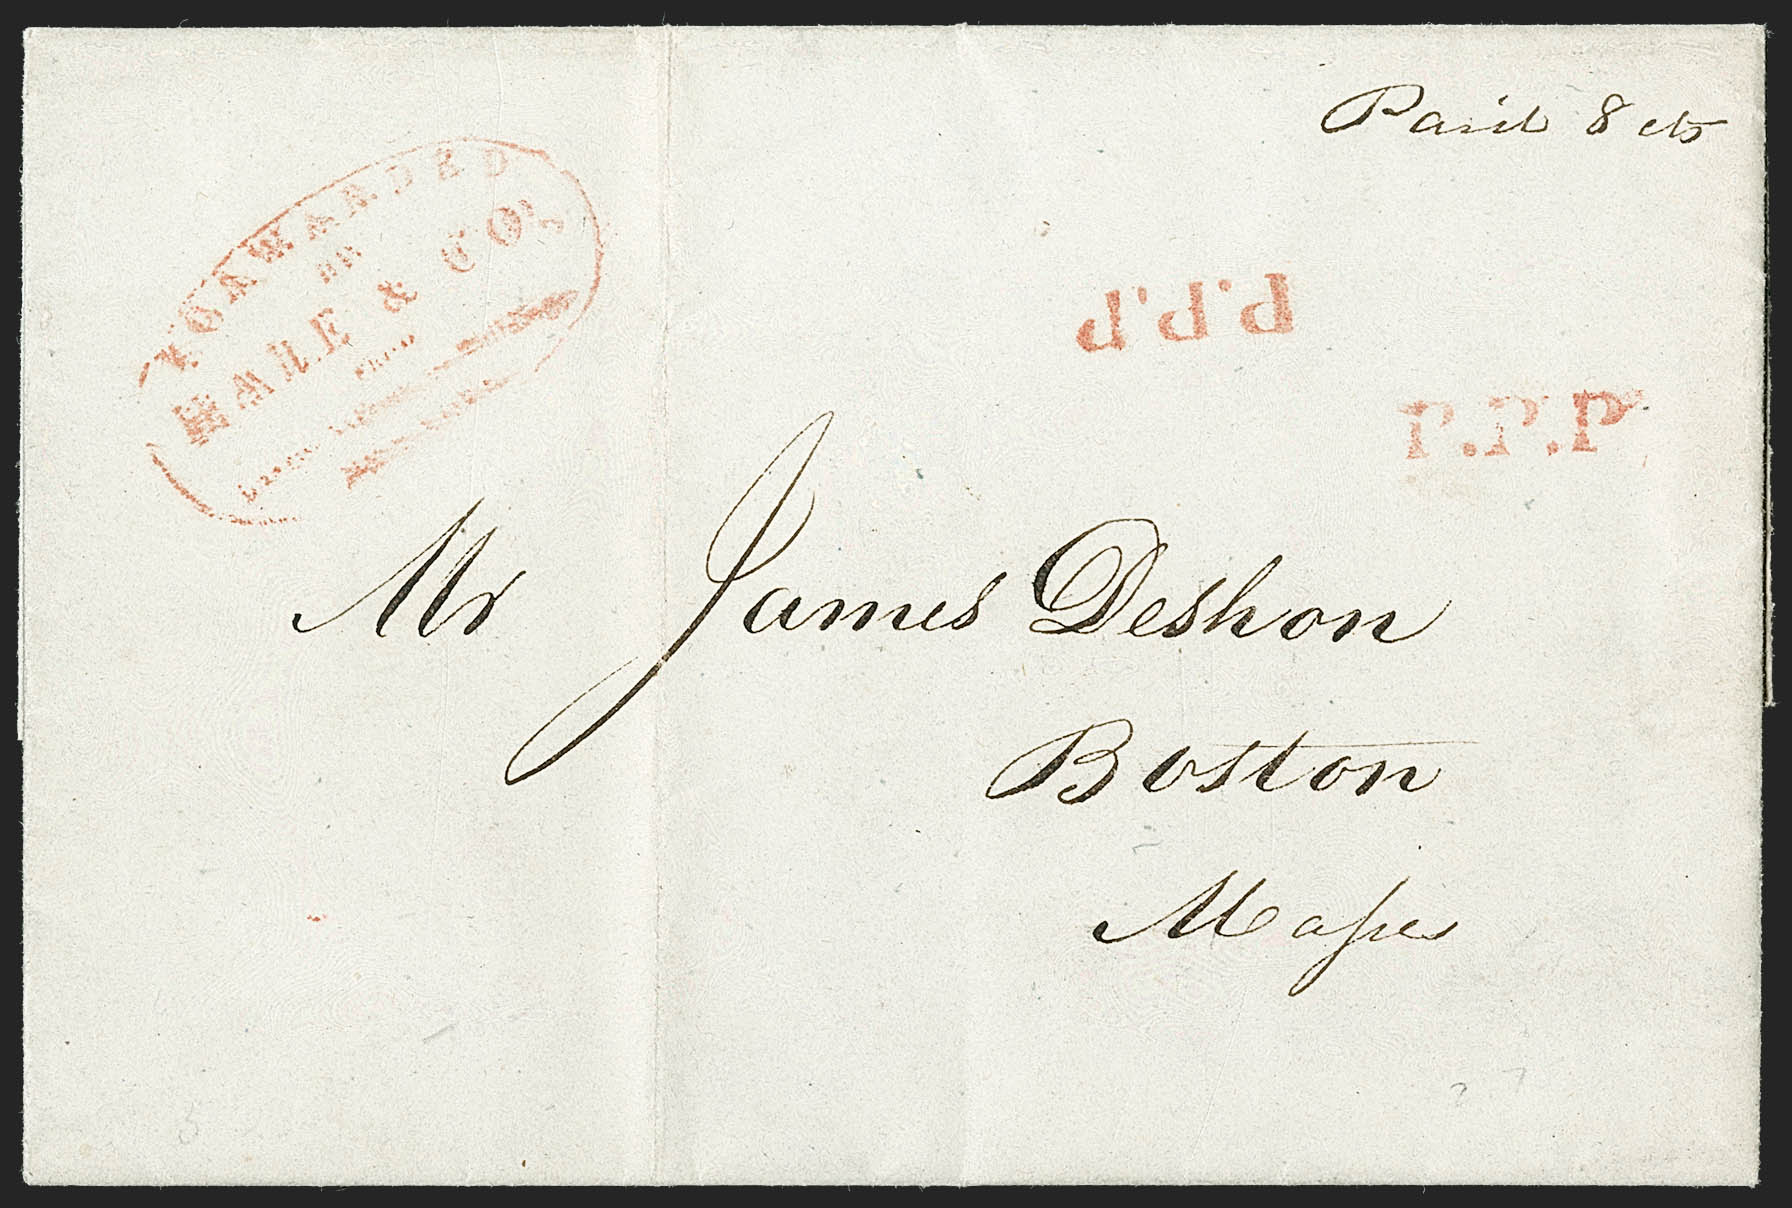 Paid 8 cts
FORWARDED
BY
HALE & CO.
FROM
P.P.P
P.P.P
Mr James Deshon
Boston
Masses